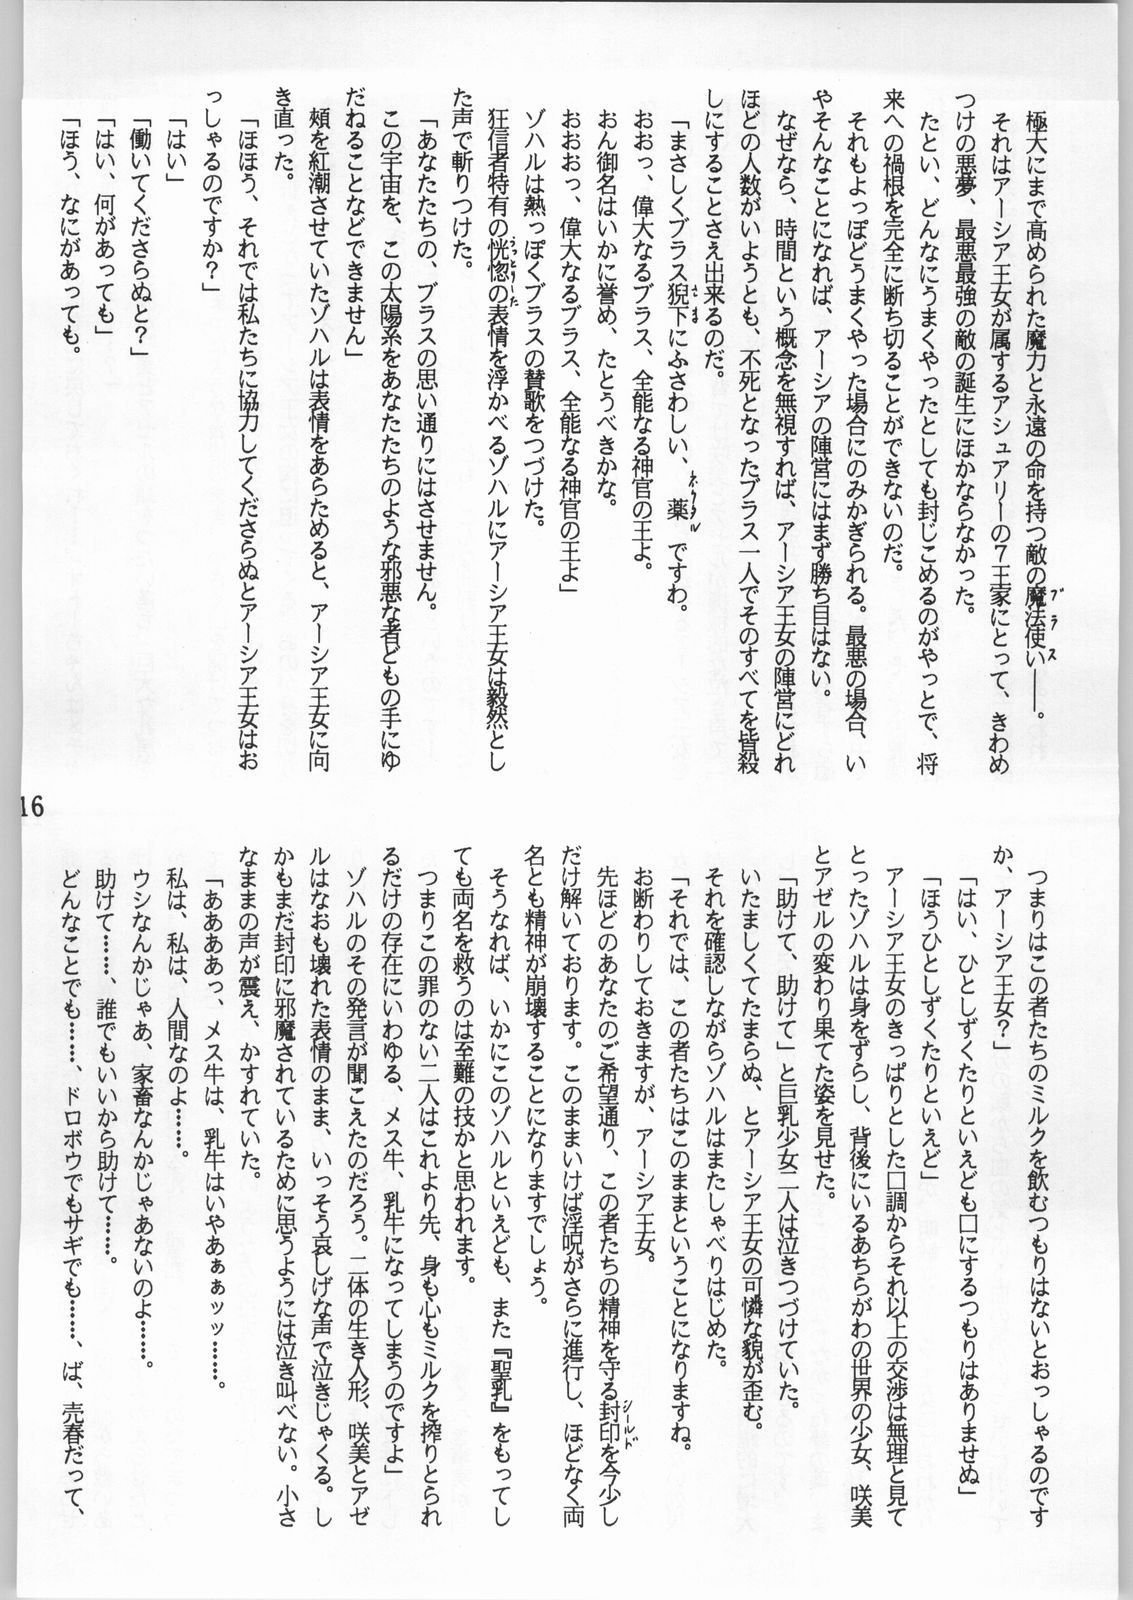 極大にまで高められた魔力と永遠の命を持つ敵の魔法使い――。
ブラス
それはアーシア王女が属するアシュアリーの7王家にとって、きわめ
つけの悪夢、最悪最強の敵の誕生にほかならなかった。
たとい、どんなにうまくやったとしても封じこめるのがやっとで、将
来への禍根を完全に断ち切ることができないのだ。
それもよっぽどうまくやった場合にのみかぎられる。最悪の場合、い
やそんなことになれば、アーシアの陣営にはまず勝ち目はない。
なぜなら、時間という概念を無視すれば、アーシア王女の陣営にどれ
ほどの人数がいようとも、不死となったブラス一人でそのすべてを皆殺
しにすることさえ出来るのだ。
「まさしくブラス猊下にふさわしい、薬ですわ。
さま
ネクタル
おおっ、偉大なるブラス、全能なる神官の王よ。
おん御名はいかに誉め、たとうべきかな。
おおおっ、偉大なるブラス、全能なる神官の王よ」
ゾハルは熱っぽくブラスの賛歌をつづけた。
狂信者特有の恍惚の表情を浮かべるゾハルにアーシア王女は毅然とし
うっとりした
た声で斬りつけた。
「あなたたちの、ブラスの思い通りにはさせません。
この宇宙を、この太陽系をあなたたちのような邪悪な者どもの手にゆ
だねることなどできません」
頬を紅潮させていたゾハルは表情をあらためると、アーシア王女に向
き直った。
「ほほう、それでは私たちに協力してくださらぬとアーシア王女はお
っしゃるのですか?」
「はい」
「働いてくださらぬと?」
「はい、何があっても」
「ほう、なにがあっても。
16
つまりはこの者たちのミルクを飲むつもりはないとおっしゃるのです
か、アーシア王女?」
「はい、ひとしずくたりといえども口にするつもりはありませぬ」
「ほうひとしずくたりといえど」
アーシア王女のきっぱりとした口調からそれ以上の交渉は無理と見て
とったゾハルは身をずらし、背後にいるあちらがわの世界の少女、咲美
とアゼルの変わり果てた姿を見せた。
「助けて、助けて」と巨乳少女二人は泣きつづけていた。
いたましくてたまらぬ、とアーシア王女の可憐な貌が歪む。
それを確認しながらゾハルはまたしゃべりはじめた。
「それでは、この者たちはこのままということになりますね。
お断わりしておきますが、アーシア王女。
先ほどのあなたのご希望通り、この者たちの精神を守る封印を今少し
シールド
だけ解いております。このままいけば淫呪がさらに進行し、ほどなく両
名とも精神が崩壊することになりますでしょう。
そうなれば、いかにこのゾハルといえども、また『聖乳』をもってし
ても両名を救うのは至難の技かと思われます。
つまりこの罪のない二人はこれより先、身も心もミルクを搾りとられ
るだけの存在にいわゆる、メス牛、乳牛になってしまうのですよ」
ゾハルのその発言が聞こえたのだろう。二体の生き人形、咲美とアゼ
ルはなおも壊れた表情のまま、いっそう哀しげな声で泣きじゃくる。し
かもまだ封印に邪魔されているために思うようには泣き叫べない。小さ
なままの声が震え、かすれていた。
「ああああっ、メス牛は、乳牛はいやあぁぁッッ……。
私は、私は、人間なのよ……。
ウシなんかじゃあ、家畜なんかじゃあないのよ……。
助けて……、誰でもいいから助けて……。
どんなことでも……、ドロボウでもサギでも……、ば、売春だって、